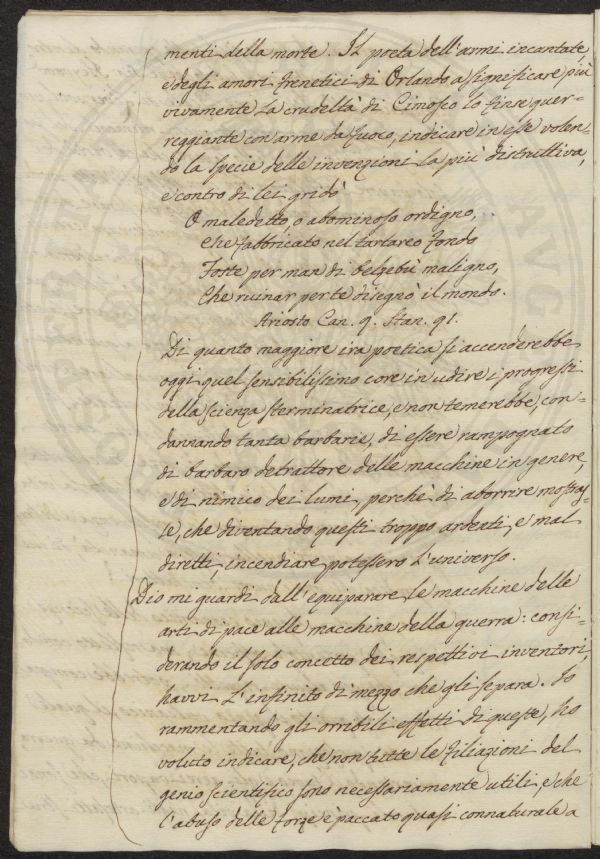 menti della morte. Il poeta dell'armi incantate,
e degli amori frenetici di Orlando a significare più
vivamente la crudeltà di Cimosco lo finse guer-
reggiante con arme da fuoco, indicare in esse volen-
do la specie delle invenzioni la più distruttiva,
e contro di lei gridò
O maledetto, o abominoso ordigno,
che fabbricato nel tartareo fondo
Foste per man di belzebù maligno,
Che ruinar per te disegnò il mondo.
Ariosto Can. 9. Stan. 91.
Di quanto maggiore ira poetica si accenderebbe
oggi quel sensibilissimo core in udire i progressi
della scienza sterminatrice, e non temerebbe, con-
dannando tanta barbarie, di essere rampognato
di barbaro detrattore delle macchine in genere,
e di nimico dei lumi, perchè di aborrire mostras-
se, che diventando questi troppo ardenti, e mal
diretti, incendiare potessero l'universo.
Dio mi guardi dall'equiparare le macchine delle
arti di pace alle macchine della guerra: consi-
derando il solo concetto dei respettivi inventori,
havvi l'infinito di mezzo che gli separa. Io
rammentando gli orribili effetti di queste, ho
voluto indicare, che non tutte le filiazioni del
genio scientifico sono necessariamente utili, e che
l'abuso delle forze è paccato quasi connaturale a